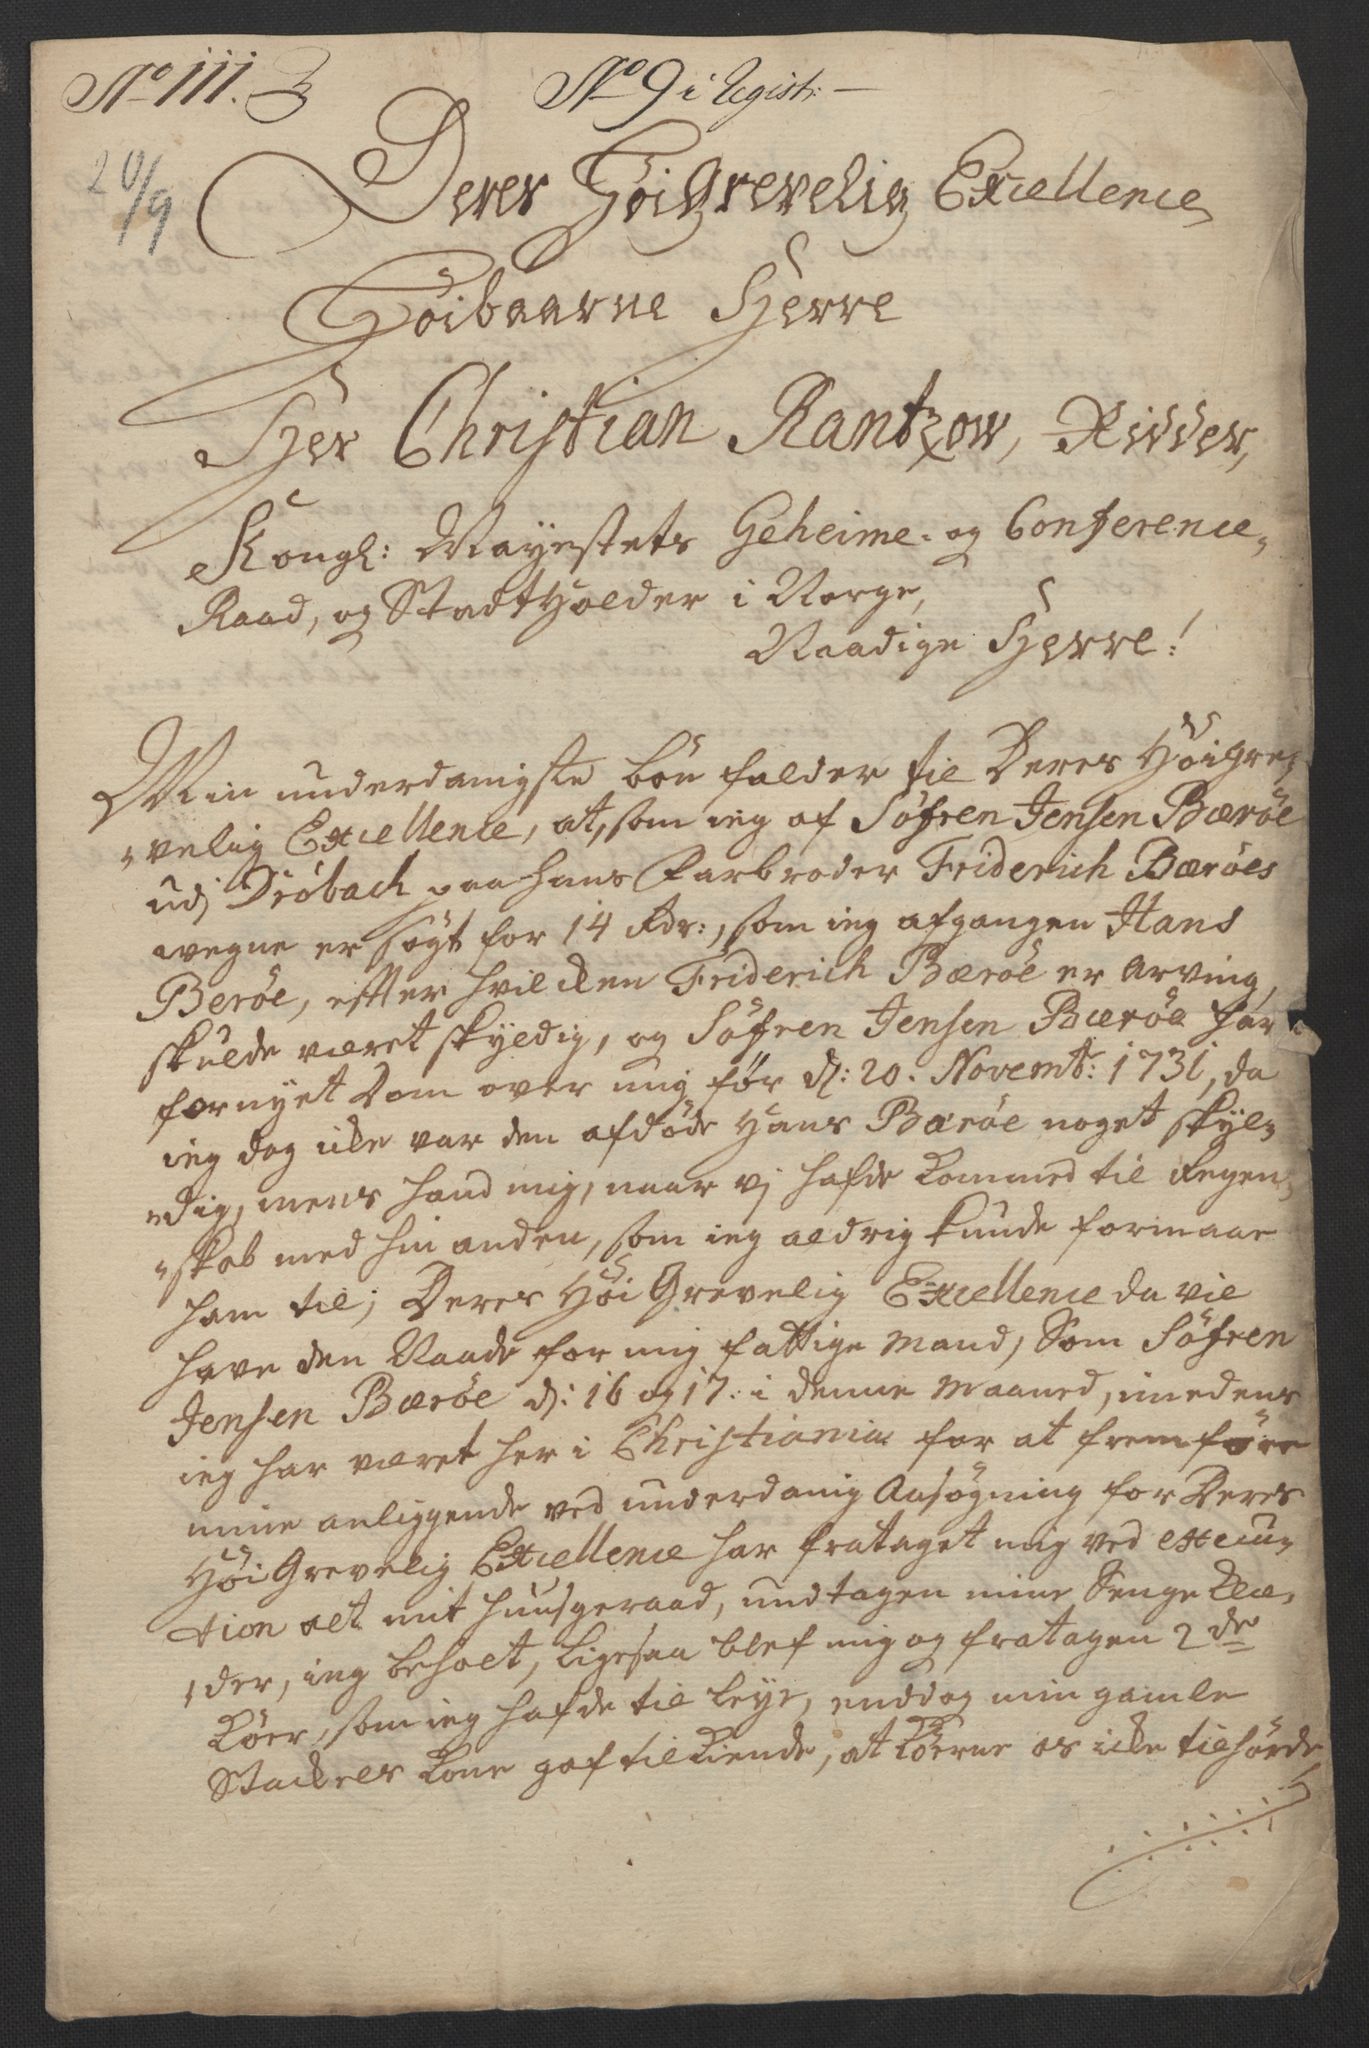 No 111.
No 9 i Regist:
20/9
Deres HöiGrevelig Excellence
Höibaarne Herre
Herr Christian Rantzow, Ridder,
Kongl: Mayestets Geheime- og Conference-
Raad, og Stadtholder i Norge,
Naadige Herre!
Min underdanigste bön falder til Deres HöiGre-
velig Excellence, at, som ieg af Söfren Jensen Bæröe
udj Dröbach paa hans Farbroder Friderich Bæröes
vegne er Sögt for 14 Rdr:, som ieg afgangen Hans
Beröe, efter hvilcken Friderich Bæröe er arving,
skulde været skyldig, og Söfren Jensen Bæröe har
fornyet Dom over mig för d: 20. Novembr: 1731, da
ieg dog icke var den afdöde Hans Bæröe noget skyl-
dig, mens hand mig, naar vj hafde kommed til Regen-
skab med hin anden, som ieg aldrig kunde formaae
ham til; Deres HöiGrevelig Excellence da vil
have den Naade for mig fattige Mand, Som Söfren
Jensen Bæröe d: 16 og 17. i denne Maaned, imedens
ieg har været her i Christiania for at fremföre
mine anliggende ved underdanig Ansögning for Deres
HöiGrevelig Excellence har frataget mig ved execu-
tion alt mit huusgeraad, undtagen mine Senge Klæ-
der, ieg beholt, ligesaa blef mig og fratagen 2de
Köer, som ieg hafde til leye, enddog min gamle
Stackels Kone gaf tilkiende, at Köerne os icke tilhörde,